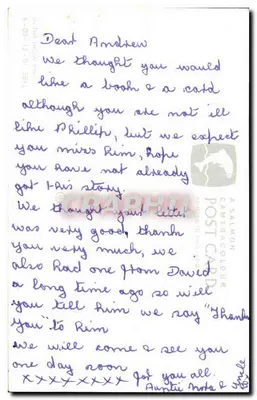 Dear Andrew
We thought you would
like a book & a card
although you are not ill
like Phillip, but we expect
you miss him, hope
you have not already
got this story.
We thought your letter
was very good thank
you very much, we
also had one from David
a long time ago so will
you tell him we say "Thank
you" to him
We will come & see you
one day soon
xxxxxxxx for you all.
Auntie &
A SALMON
CAMERACOLOUR
POST CARD